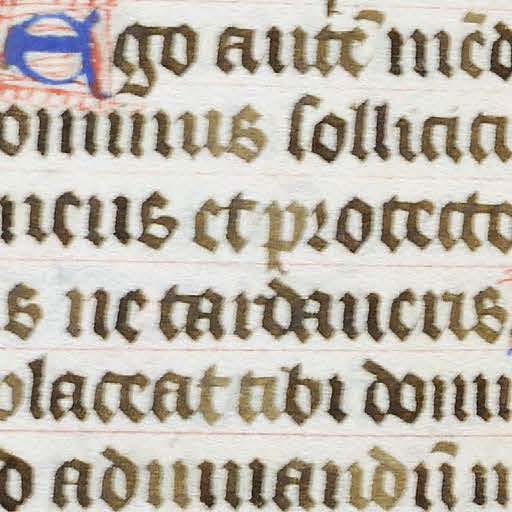 Ego aute᷉ me᷉d
ominus sollicit
meus et protecto
s ne tardaueris
placeat tibi domi
d adiuuandu᷉ m